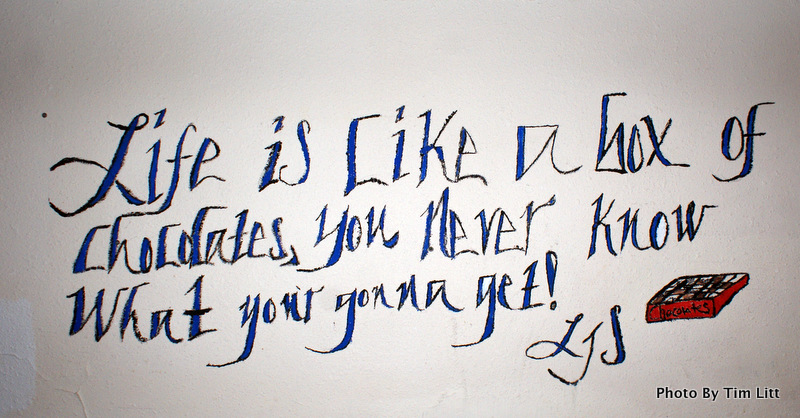 Life is Like a box of
chocolates, you never know
What your gonna get!
LJS
Chocolates
Photo By Tim Litt